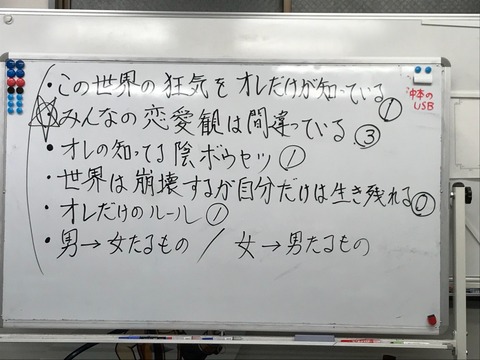 ・この世界の狂気をオレだけが知っている ①
☆みんなの恋愛観は間違っている. ③
・オレの知ってる陰ボウセツ ①
・世界は崩壊するが自分だけは生き残れる ⓪
・オレだけのルール ①
・男→女たるもの / 女→男たるもの
沖本の
USB